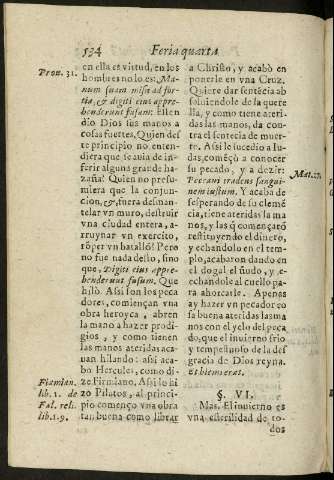 534
Feria quarta
en ella es virtud, en los
hombres no lo es: Ma-
Prou. 31.
num suam misit ad for-
tia, & digiti eius appre-
henderunt fusum: Ellen
dio Dios sus manos a
cosas fuertes. Quien des
te principio no enten-
diera que se auia de in-
ferir alguna grande ha-
zaña? Quien no presu-
miera que la conjun-
cion, &, fuera desman-
telar vn muro, destruir
vna ciudad entera, a-
rruynar vn exercito,
rõper vn batallõ? Pero
no fue nada desto, sino
que, Digiti eius appre-
henderunt fusum. Que
hilò. Assi son los peca
dores, comiençan vna
obra heroyca, abren
la mano a hazer prodi-
gios, y como tienen
las manos ateridas aca-
uan hilando: assi aca-
bo Hercules, como di-
Fiamian.
lib. 1. de
Fal. reli.
lib. 1. 9.
ze Firmiano. Assi lo hi
zo Pilatos, al princi-
pio començo vna obra
tan buena como librar
a Christo, y acabò en
ponerle en vna Cruz.
Quiere dar sentẽcia ab
soluiendole de la quere
lla, y como tiene ateri-
das las manos, da con-
tra el sentecia de muer-
te. Assi le sucedio a Iu-
das, começò a conocer
su pecado, y a dezir:
Mat. 27.
Peccaui tradens sangui-
nem iustum. Y acaba de
sesperando de su clemẽ
cia, tiene ateridas la ma
nos, y las q̃ començarõ
restituyendo el dinero,
y echandolo en el tem-
plo, acabaron dando en
el dogal el ñudo, y e-
echandole al cuello pa-
ra ahorcarle. Apenas
ay hazer vn pecador co
sa buena ateridas las ma
nos con el yelo del peca
do, que el inuierno frio
y tempestuoso de la des
gracia de Dios reyna.
et hiems erat.
§. VI.
Mas. El inuierno es
vna esterilidad de to-
dos